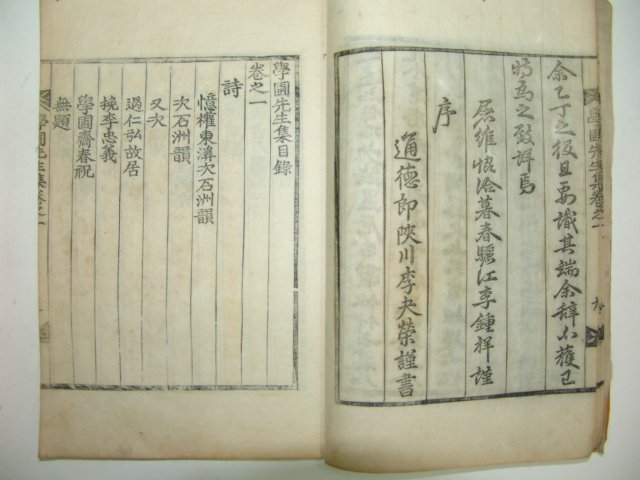 余乙丁之板且要識其端余辭不獲已
時爲之敢拜焉
屠維協洽暮春驪江李鍾祥謹
序
通德郎陜川李夬榮謹書
學圃先生集卷之一
學圃先生集目錄
卷之一
詩
憶權東溟次石洲韻
次石洲韻
又次
過仁弘故居
挽李忠義
學圃齋春祝
無題
學圃先生集卷之一